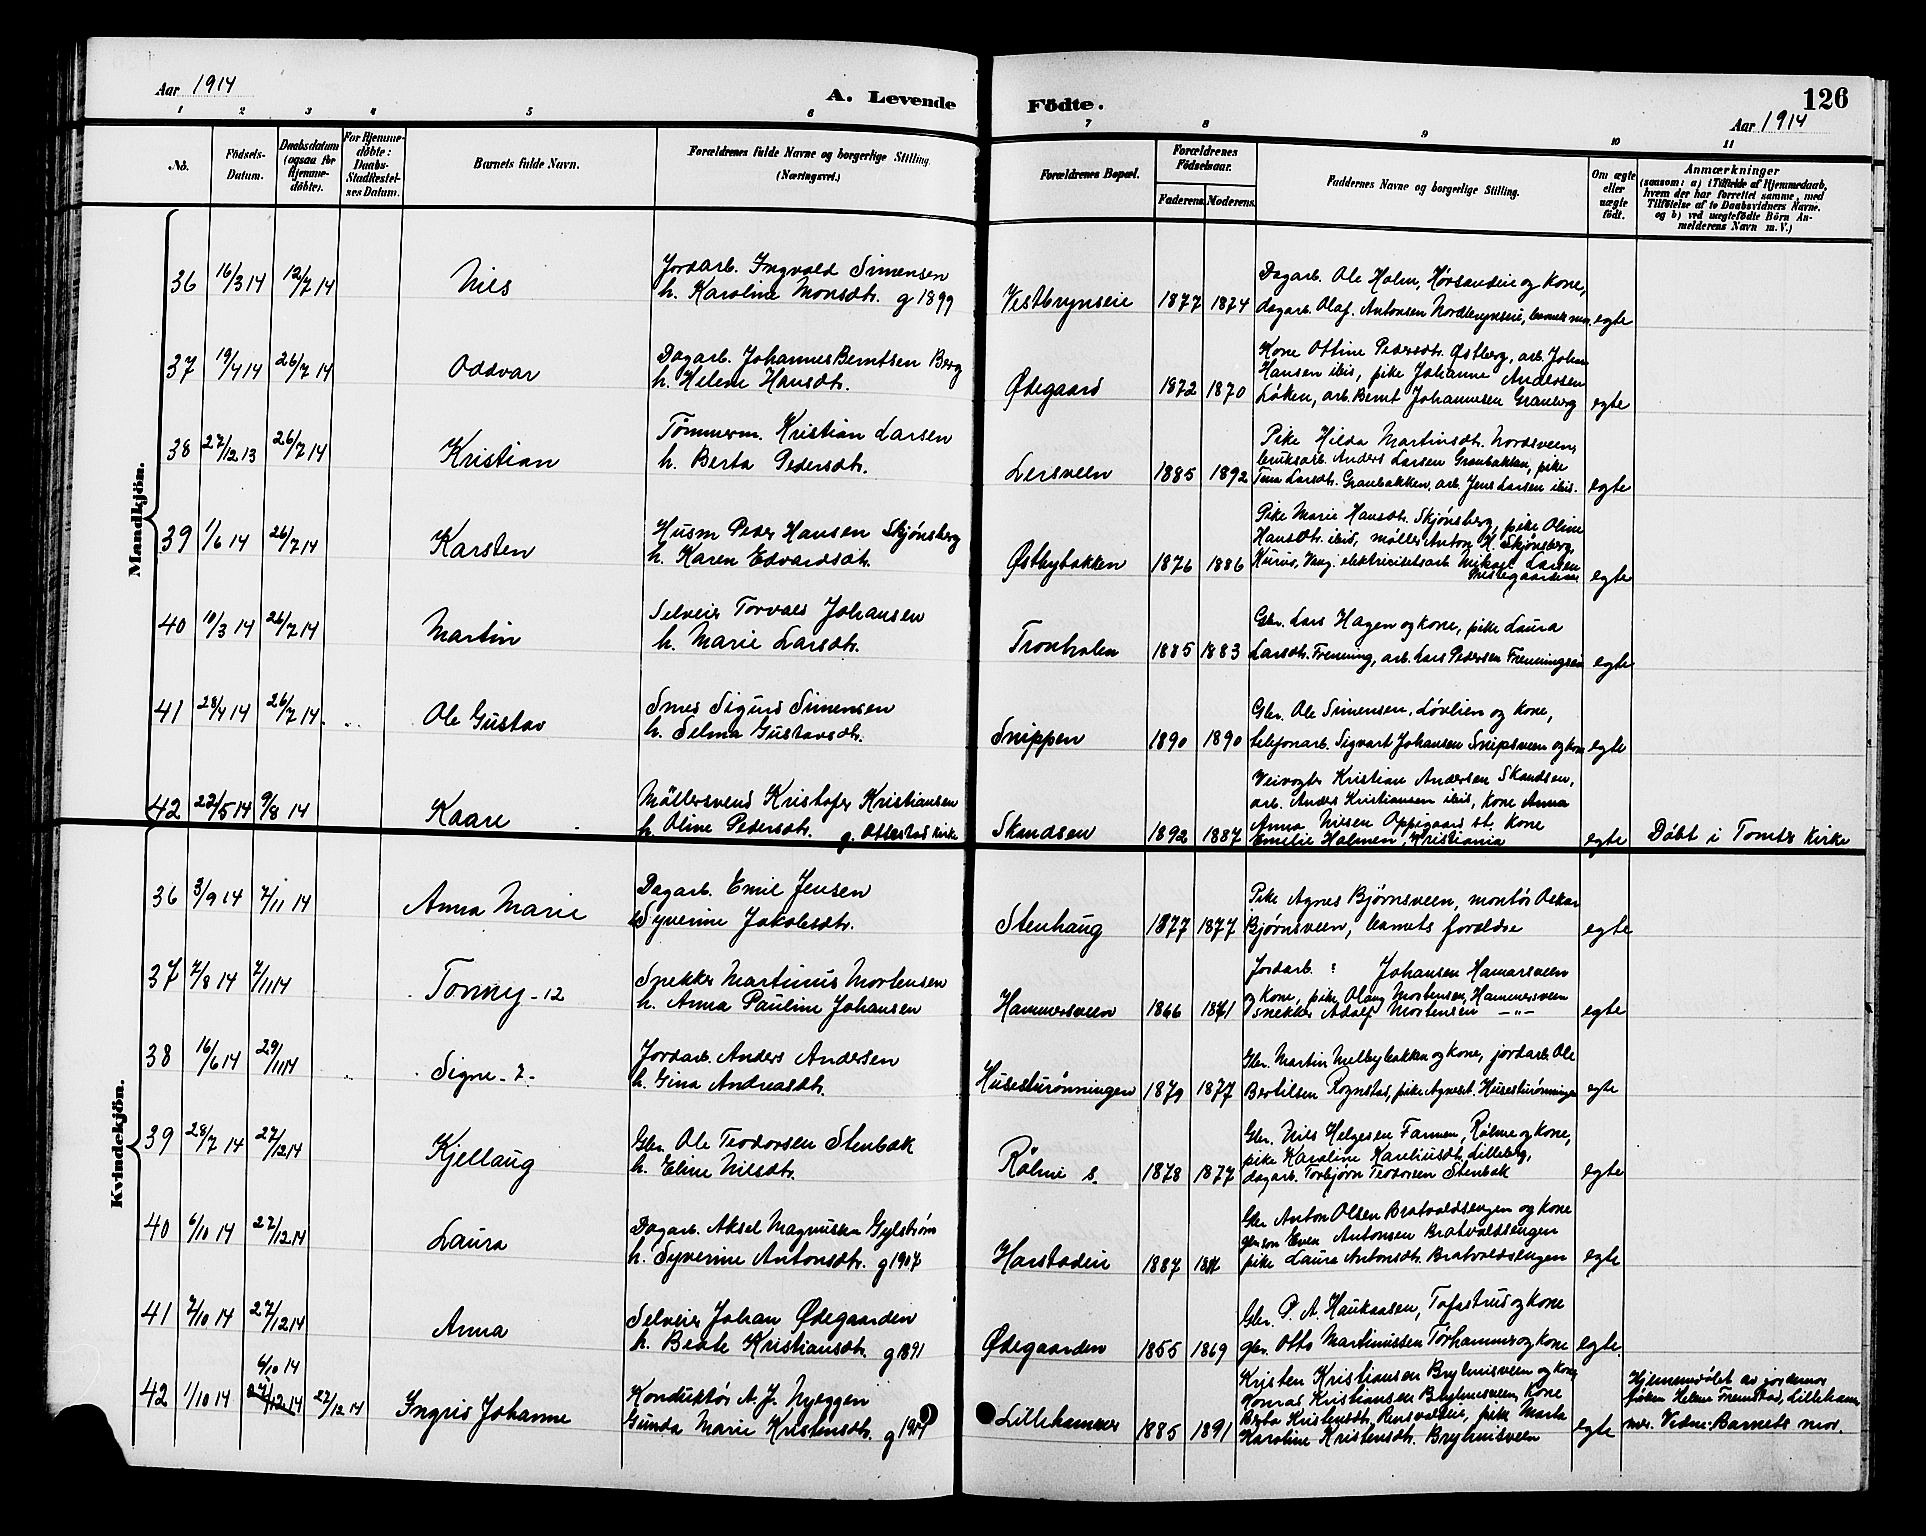 Aar 1914
A. Levende Födte.
126
Aar 1914
1 2 3 4 5 6 7 8 9 10 11
No.
Födsels-Datum.
Daabsdatum (ogsaa for Hjemme-döbte).
For Hjemme-döbte: Daabs-Stadfæstel-ses Datum.
Barnets fulde Navn.
Forældrenes fulde Navne og borgerlige Stilling. (Næringsvei.)
Forældrenes Bopæl.
Forældrenes Födselsaar.
Faderens. Moderens.
Faddernes Navne og borgerlige Stilling.
Om ægte eller uægte födt.
Anmærkninger
(saasom: a) i Tilfælde af Hjemmedaab,
hvem der har forrettet samme, med
Tilföielse af to Daabsvidners Navne.
og b) ved uægtefödte Börn An-
melderens Navn m. V.)
Mandkjön.
36 16/3 14 12/7 14 Nils
Jordarb. Ingvald Simensen
h. Karoline Monsdtr. g 1899
Vestbrynseie 1877 1874
Dagarb. Ole Holm, Hørsandeie og kone,
dagarb. Olaf Antonsen Nordbrynseie, barnets mor
egte
37 19/4 14 26/7 14 Oddvar
Dagarb. Johannes Berntsen Berg
h. Helene Hansdtr.
Ødegaard 1872 1870
Kone Ottine Pedersdtr. Østberg, arb. Johan
Hansen ibid, pike Johanne Andersen
Løken, arb. Bernt Johannesen Granberg
egte
38 27/12 13 26/7 14 Kristian
Tømmerm. Kristian Larsen
h. Berta Pedersdtr.
Lersveen 1885 1892
Pike Hilda Martinsdtr. Nordsveen,
bruksarb. Anders Larsen Graubakken, pike
Tina Larsdtr. Graubakken, arb. Jens Larsen ibid.
egte
39 1/6 14 26/7 14 Karsten
Husm Peder Hansen Skjønsberg
h. Karen Edvardsdtr.
Østbybakken 1876 1886
Pike Marie Hansdtr. Skjønsberg, pike Oline
Hansdtr. ibid, møller Anton H. Skjønsberg,
Kurud, Vang, elektricitetsarb. Mikael Larsen
egte
40 19/3 14 26/7 14 Martin
Selveier Torvald Johansen
h. Marie Larsdtr.
Tronholen 1885 1883
Gbr. Lars Hagen og kone, pike Laura
Larsdtr. Frenning, arb. Lars Pedersen Frenningseie
egte
41 28/4 14 26/7 14 Ole Gustav
Smed Sigurd Simensen
h. Selma Gustavsdtr.
Snippen 1890 1890
Gbr. Ole Simensen Løvlien og kone,
telefonarb. Sigvart Johansen Snipsveen og kone
egte
42 22/5 14 9/8 14 Kaare
Möllersvend Kristofer Kristiansen
h. Oline Pedersdtr. g. Ottestad kirke
Skandsen 1892 1887
Veivogter Kristian Andersen Skandsen,
arb. Anders Kristiansen ibid, kone Anna
Anna Nilsen Oppegaard st. kone
Emilie Holmen, Kristiania
egte Døbt i Tomter kirke
Kvindekjön.
36 3/9 14 7/11 14 Anna Marie
Dagarb. Emil Jensen
Syverine Jakobsdtr.
Stenhaug 1877 1877
Pike Agnes Bjørnsveen, montør Oskar
Bjørnsveen, barnets forældre
egte
37 7/8 14 7/11 14 Tonny - 12
Snekker Martinus Mortensen
h. Anna Pauline Johansen
Hammersveen 1866 1871
Jordarb. ? Johansen Hamarsveen
og kone, pike Olaug Mortensen, Hammersveen
snekker Adolf Mortensen —„—
egte
38 16/6 14 29/11 14 Signe - 7 -
Jordarb. Anders Andersen
h. Gina Andreasdtr.
Husesturønningen 1879 1877
Gbr. Martin Melbybakken og kone, jordarb. Ole
Bertilsen Rognstad, pike Agnes A. Husesturønningen
egte
39 28/7 14 27/12 14 Kjellaug
Gbr. Ole Teodorsen Stenbæk
h. Eline Nilsdtr.
Rølme s. 1878 1877
Gbr. Nils Helgesen Farmen, Rølme og kone,
pike Karoline Kareliusdtr. Lilleberg,
dagarb. Torbjørn Teodorsen Stenbæk
egte
40 6/10 14 27/12 14 Laura
Dagarb. Aksel Magnuska Gylstrøm
h. Syverine Antonsdtr. g 1907
Harstadeie 1887
Gbr Anton Olsen Bratvoldsengen og kone
gbrson Even Antonsen Bratvoldsengen
pike Laura Antonsdtr. Bratvoldsengen
egte
41 7/10 14 27/12 14 Anna
Selveier Johan Ødegaarden
h. Beate Kristiansdtr. g 1891
Ødegaarden 1855 1869
Gbr. P. A. Haukaasen, Tofastrud og kone
gbr. Otto Martinussen Torhammer og kone
egte.
42 1/10 14 6/10 14 27/12 14 27/12 14 Ingrid Johanne
Konduktør A. J. Nyeggen
Gunda Marie Kristensdtr. g 1914
Lillehammer 1885 1891
Kristen Kristiansen Bryhnisveen og kone,
Konrad Kristiansen Bryhnisveen, kone
Berta Kristensdtr. Rensvoldeie, pike Marta
Karoline Kristensdtr. Bryhnisveen
egte
Hjemmedøbt av jordemor
frøken Helene Fremstad, Lilleham
mer. Vidne: Barnets mor.